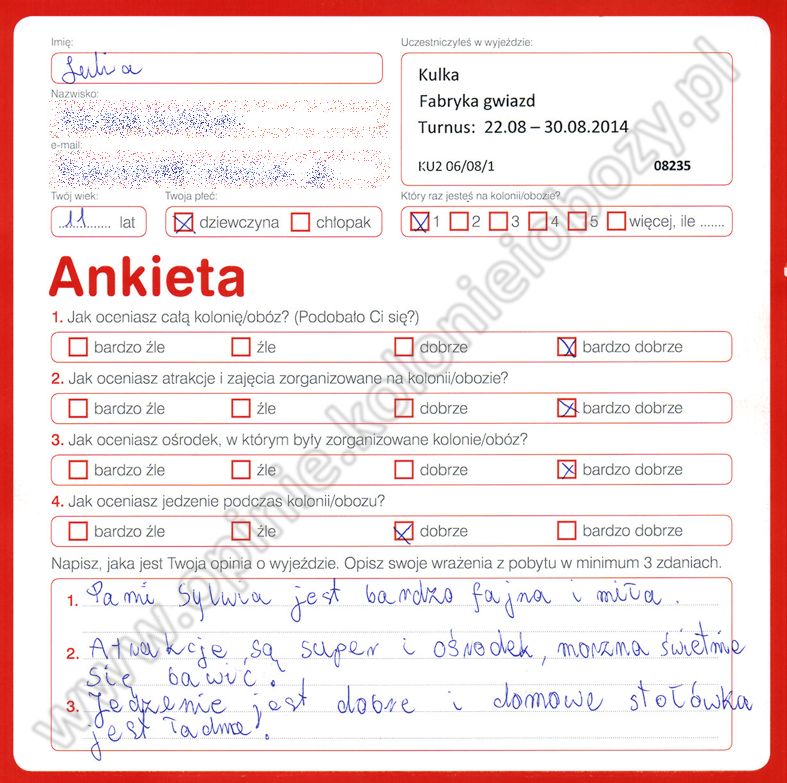 Imię:
Julia
Nazwisko:
e-mail:
Twój wiek:
11 lat
Twoja płeć:
dziewczyna chłopak
Uczestniczyłeś w wyjeździe:
Kulka
Fabryka gwiazd
Turnus: 22.08 – 30.08.2014
KU2 06/08/1 08235
Który raz jesteś na kolonii/obozie?
1 2 3 4 5 więcej, ile .......
Ankieta
1. Jak oceniasz całą kolonię/obóz? (Podobało Ci się?)
bardzo źle źle dobrze bardzo dobrze
2. Jak oceniasz atrakcje i zajęcia zorganizowane na kolonii/obozie?
bardzo źle źle dobrze bardzo dobrze
3. Jak oceniasz ośrodek, w którym były zorganizowane kolonie/obóz?
bardzo źle źle dobrze bardzo dobrze
4. Jak oceniasz jedzenie podczas kolonii/obozu?
bardzo źle źle dobrze bardzo dobrze
Napisz, jaka jest Twoja opinia o wyjeździe. Opisz swoje wrażenia z pobytu w minimum 3 zdaniach.
1. Pani Sylwia jest bardzo fajna i miła.
2. Atrakcje są super i ośrodek, morzna świetnie
się bawić.
3. Jedzenie jest dobre i domowe stołówka
jest ładna.
www.opinie.kolonieiobozy.pl